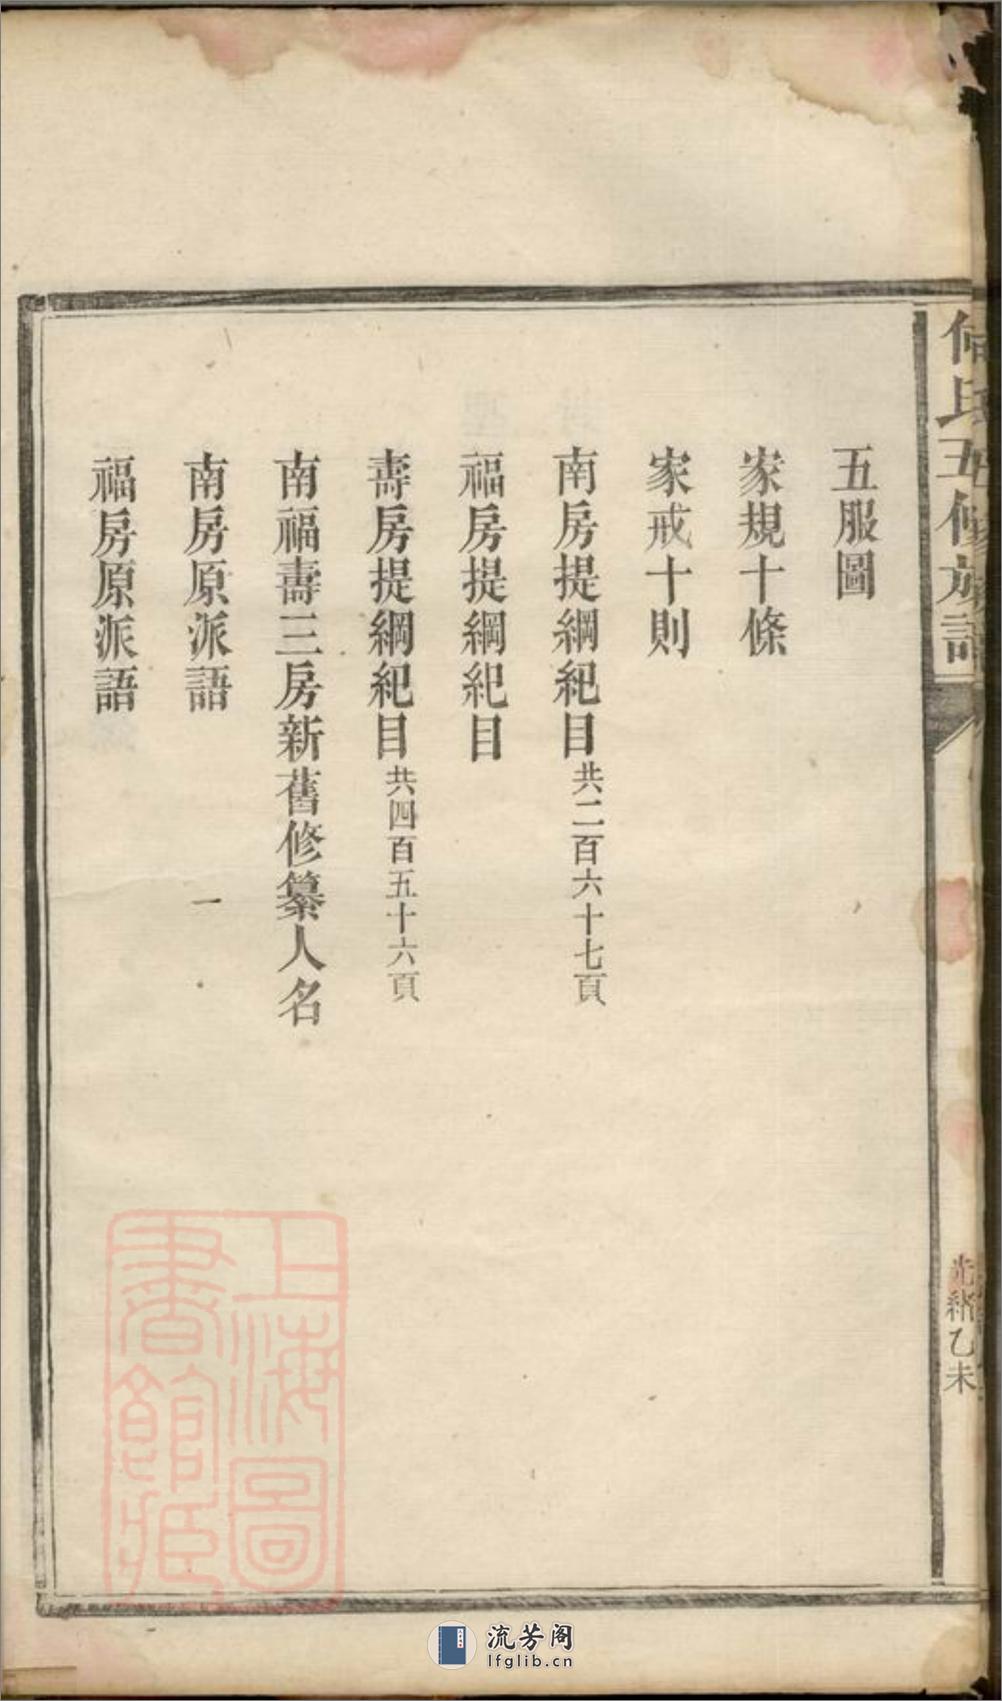 何氏五修族譜
光緒乙未
五服圖
家規十條
家戒十則
南房提綱紀目共二百六十七頁
福房提綱紀目
壽房提綱紀目共四百五十六頁
南福壽三房新舊修纂人名
南房原派語
福房原派語
上海圖
書館藏
流芳阁
lfglib.cn